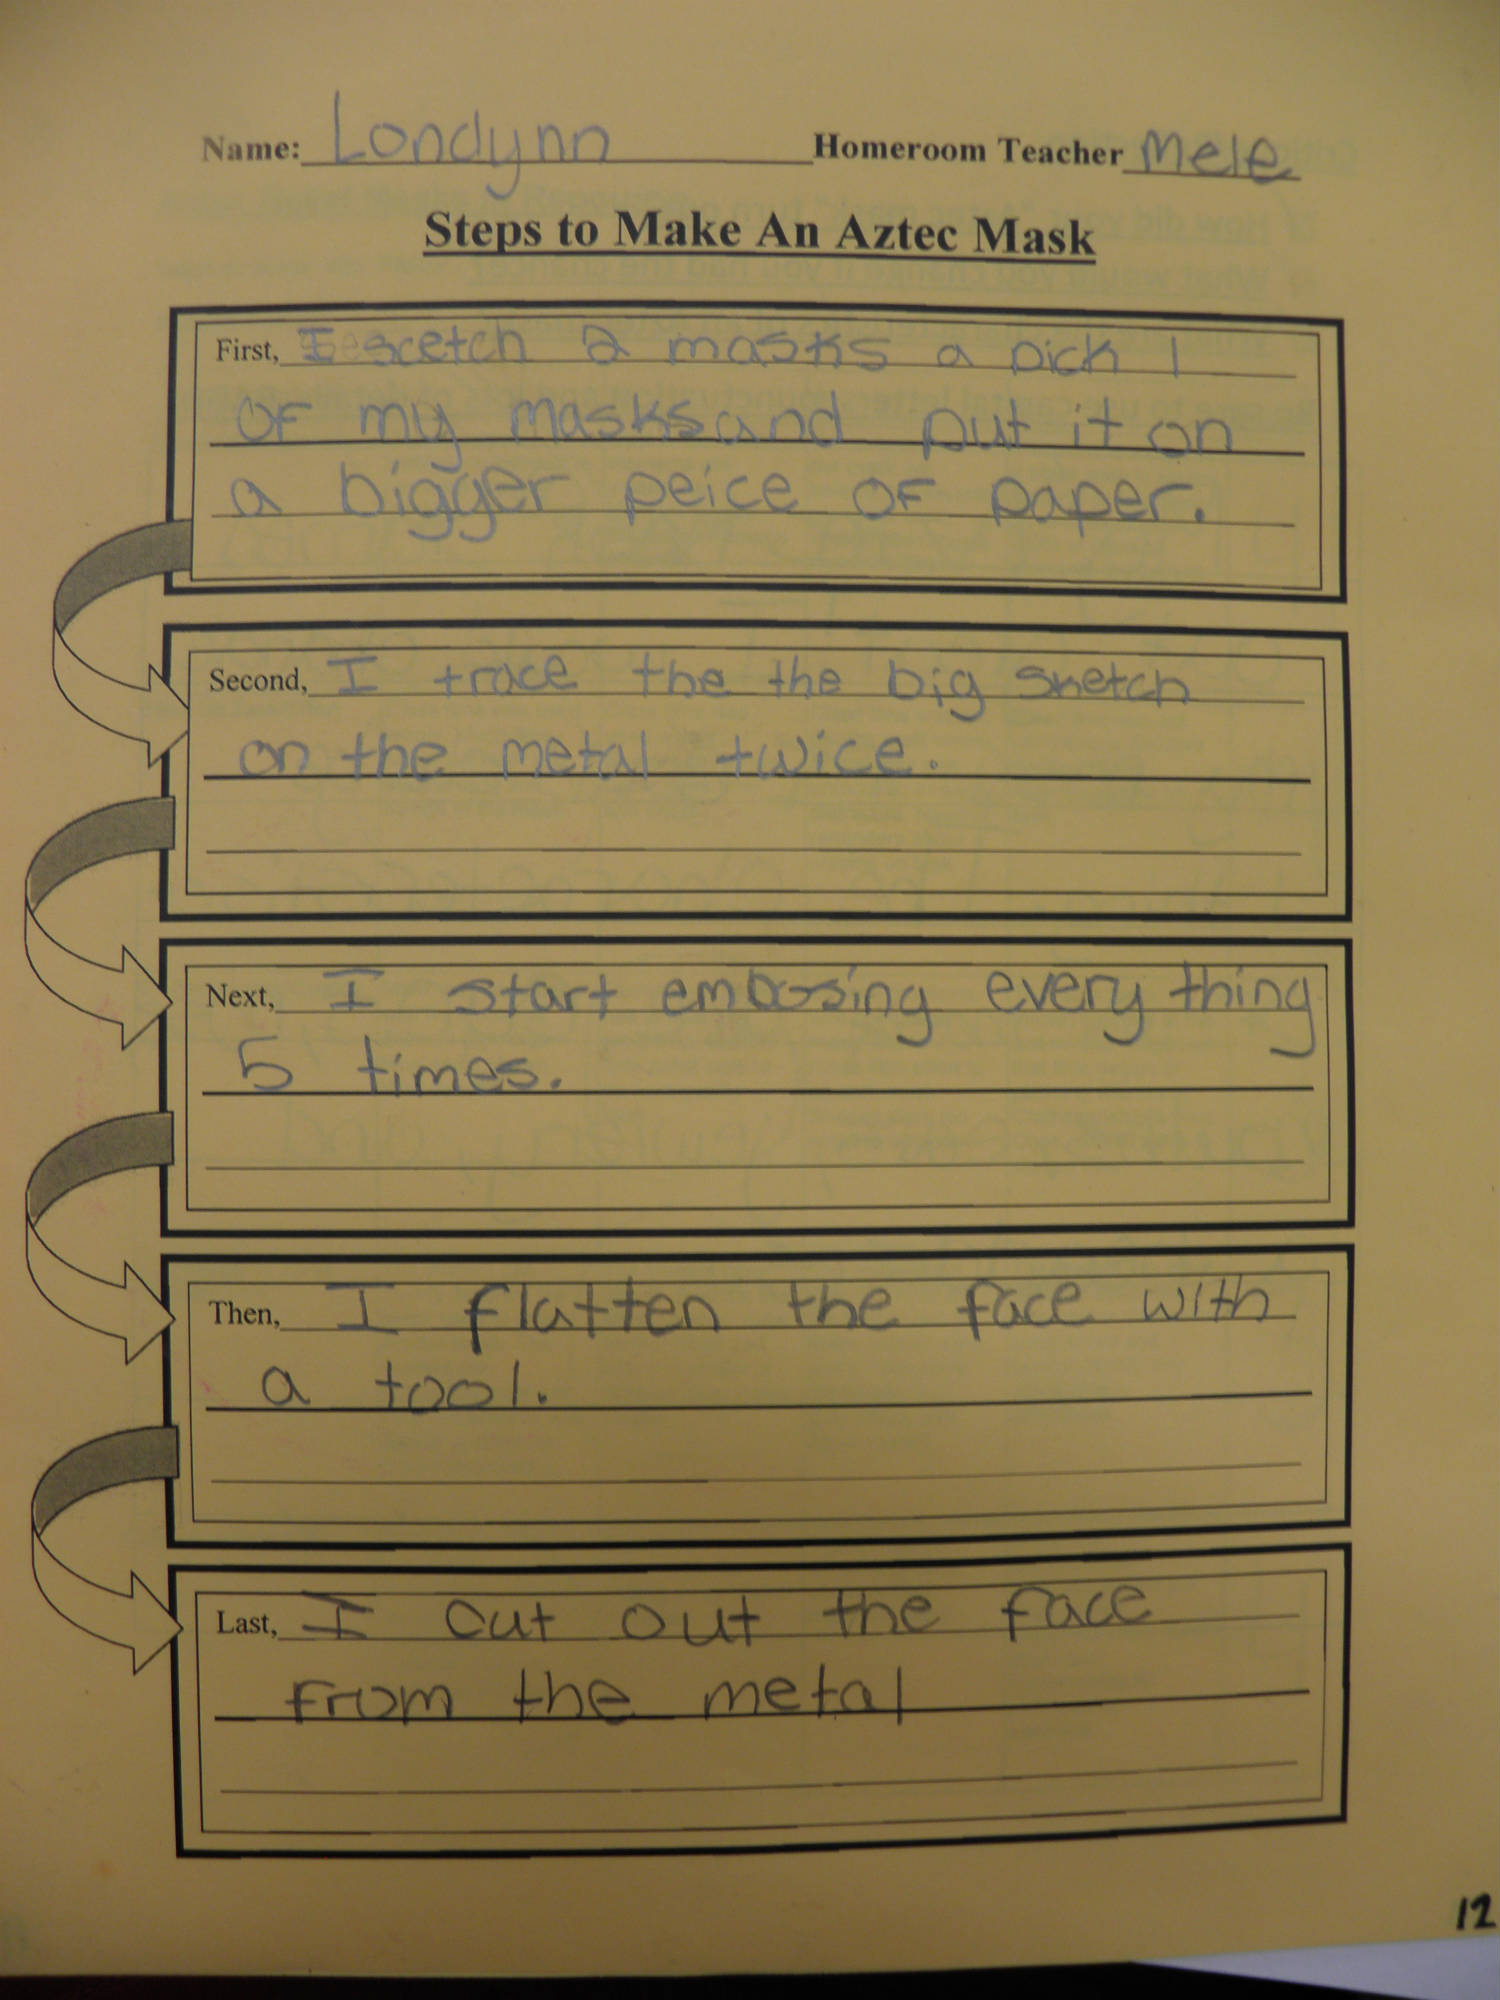 Name: Londynn Homeroom Teacher Mele
Steps to Make An Aztec Mask
First, I scetch 2 masks a pick 1
of my masks and put it on
a bigger peice of paper.
Second, I trace the the big sketch
on the metal twice.
Next, I start embosing every thing
5 times.
Then, I flatten the face with
a tool.
Last, I cut out the face
from the metal
12